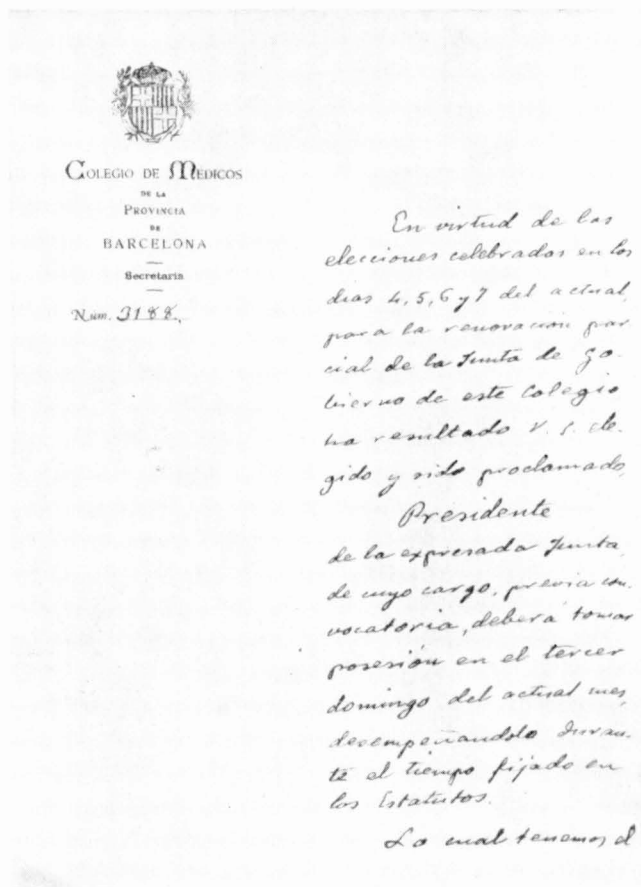 COLEGIO DE MÉDICOS
DE LA
PROVINCIA
DE
BARCELONA
Secretaría
Núm. 3188.
En virtud de las
elecciones celebradas en los
dias 4, 5, 6 y 7 del actual,
para la renovacion par
cial de la Junta de Go-
bierno de este Colegio
ha resultado V. S. ele-
gido y sido proclamado,
Presidente
de la expresada Junta,
de cuyo cargo, previa con-
vocatoria, deberá tomar
posesión en el tercer
domingo del actual mes
desempeñandolo duran-
te el tiempo fijado en
los Estatutos.
Lo cual tenemos el